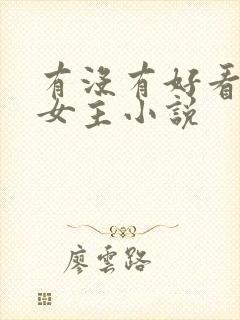 有没有好看
女主小説
廖雲路